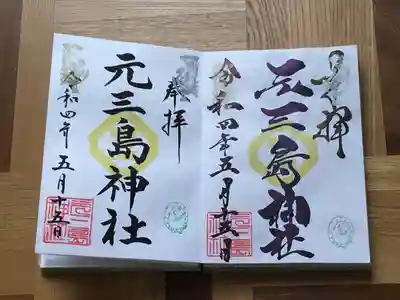 奉拝
元三島神社
令和四年五月十五日
奉拝
元三島神社
令和四年五月十五日